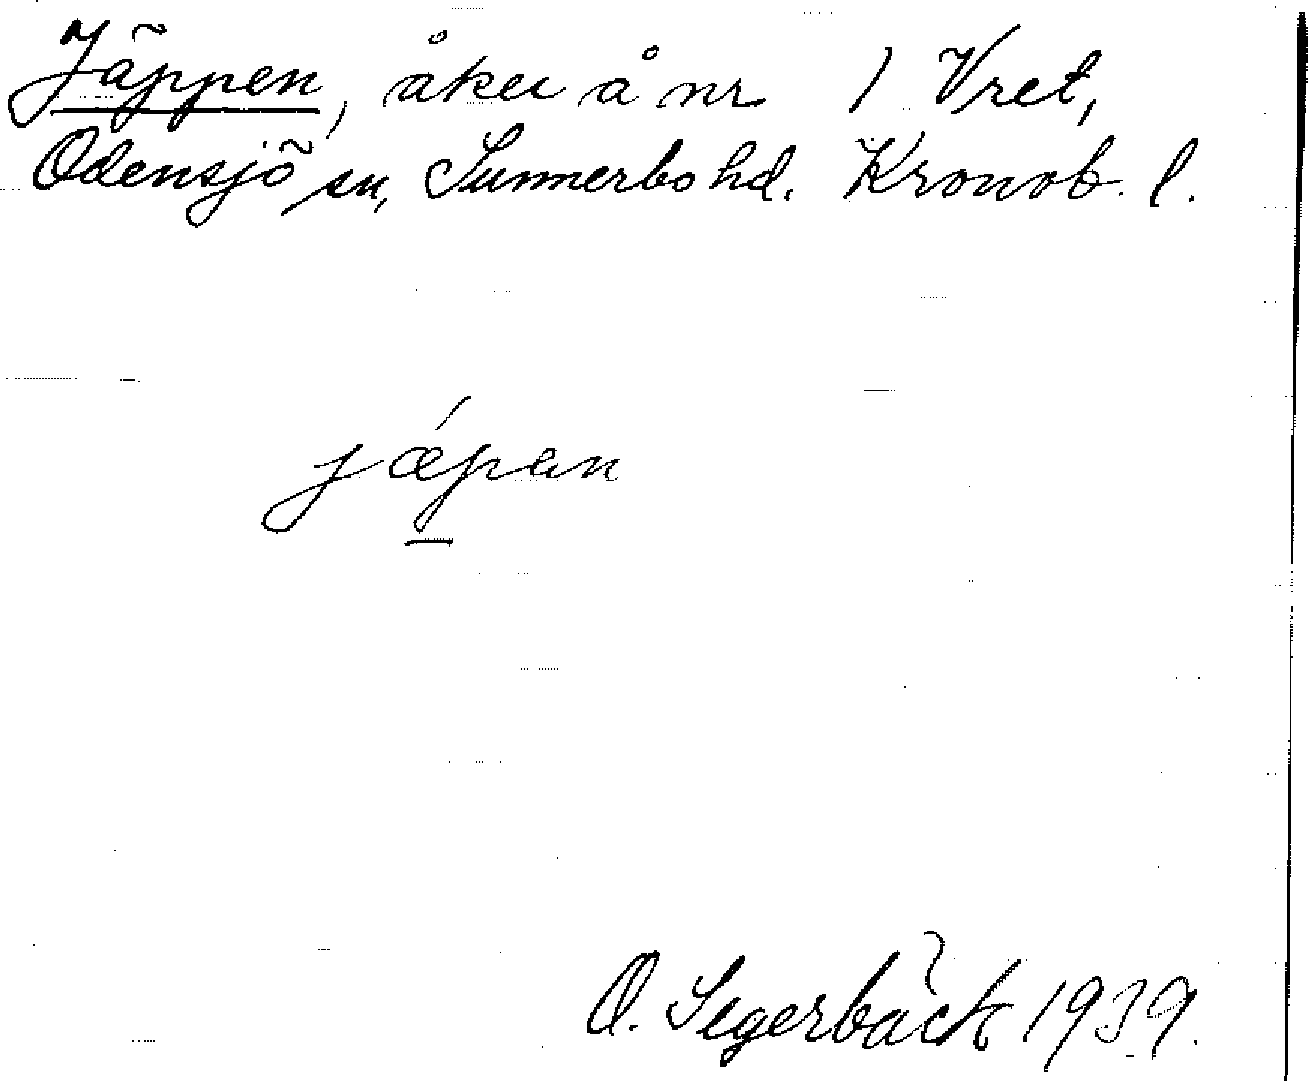 Jäppen, åker å nr 1 Vret,
Odensjö sn, Sunnerbo hd. Kronob. l.
jǽpan
O. Segerbäck 1939.